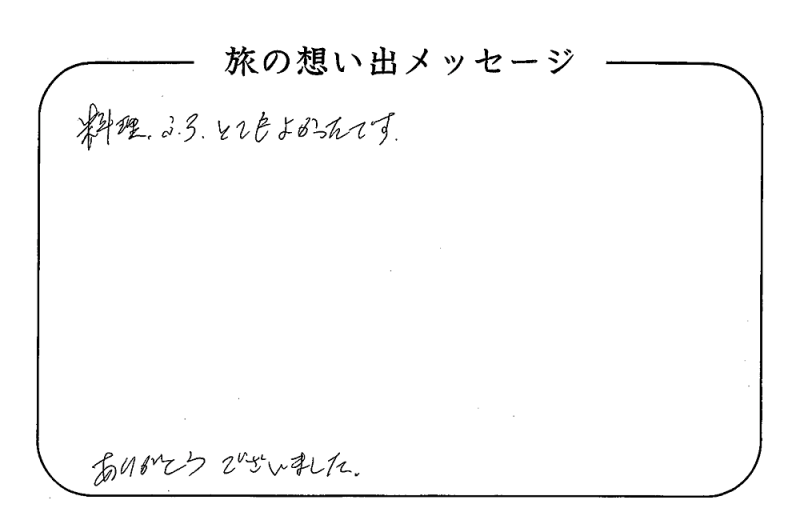 旅の想い出メッセージ
料理、ふろ、とてもよかったです.
ありがとうございました.